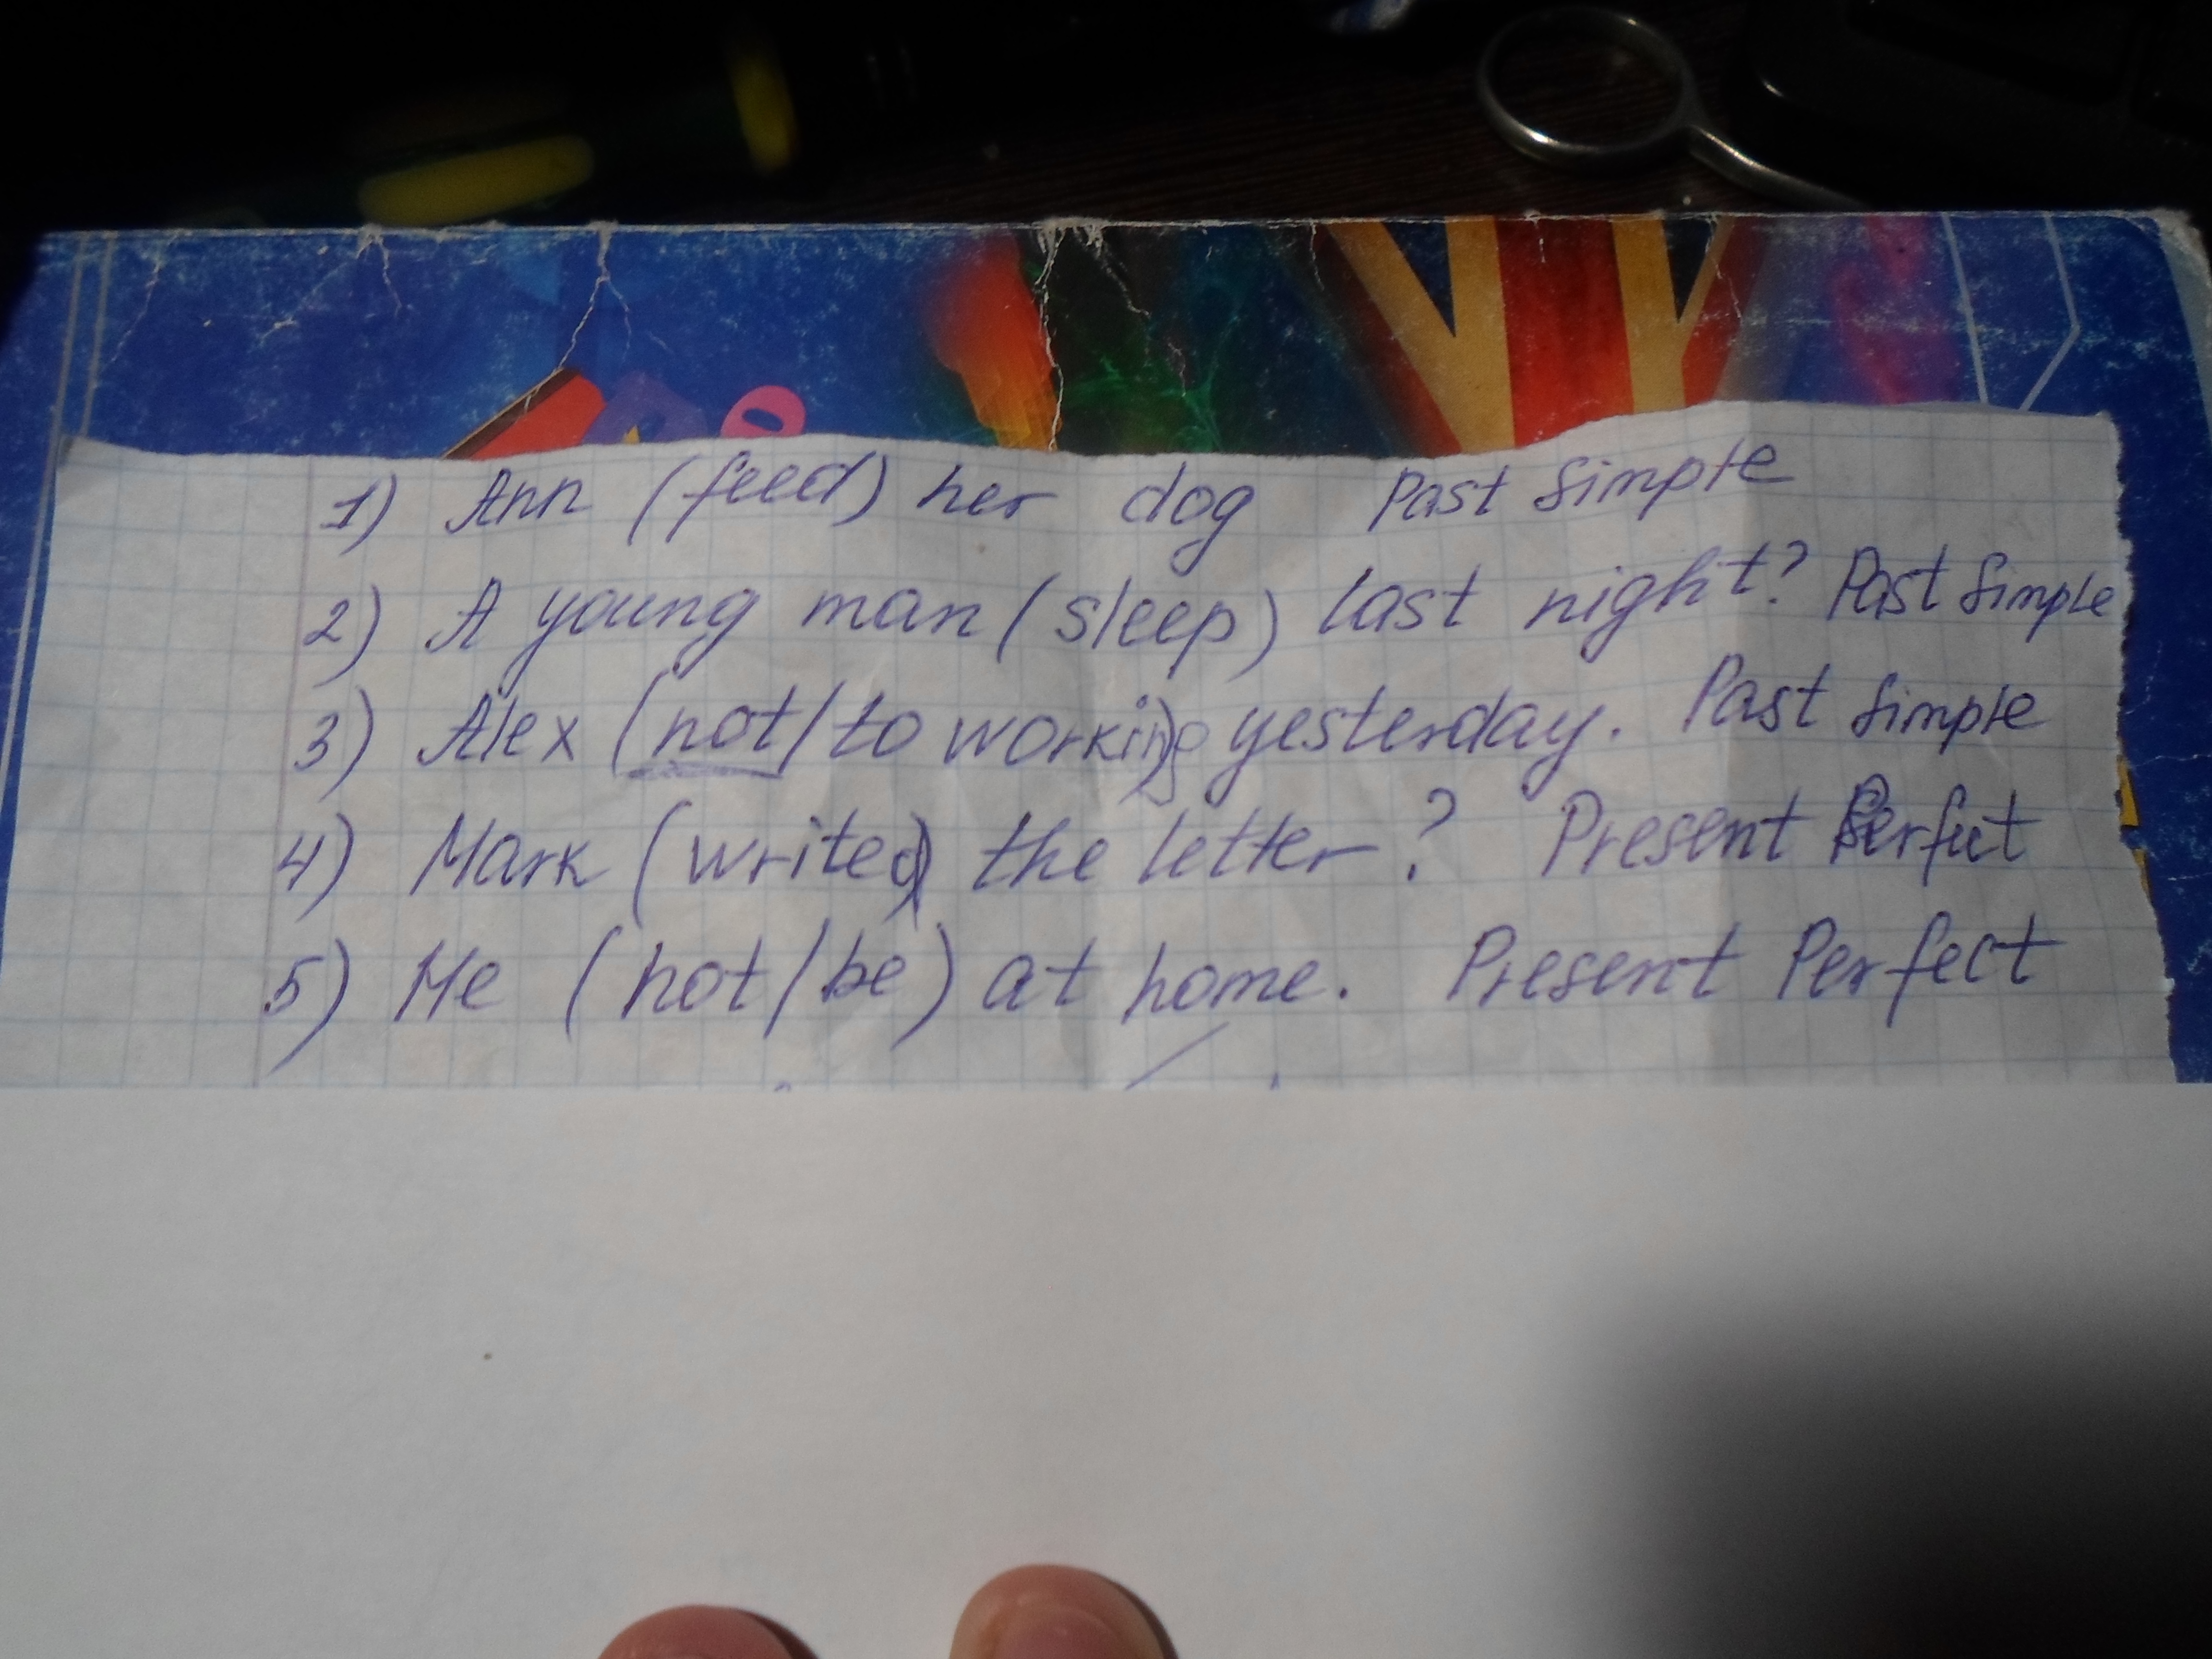 1) Ann (feed) her dog Past Simple
2) A young man (sleep) last night? Past Simple
3) Alex (not/to working) yesterday. Past Simple
4) Mark (writed) the letter? Present Perfect
5) Me (not/be) at home. Present Perfect